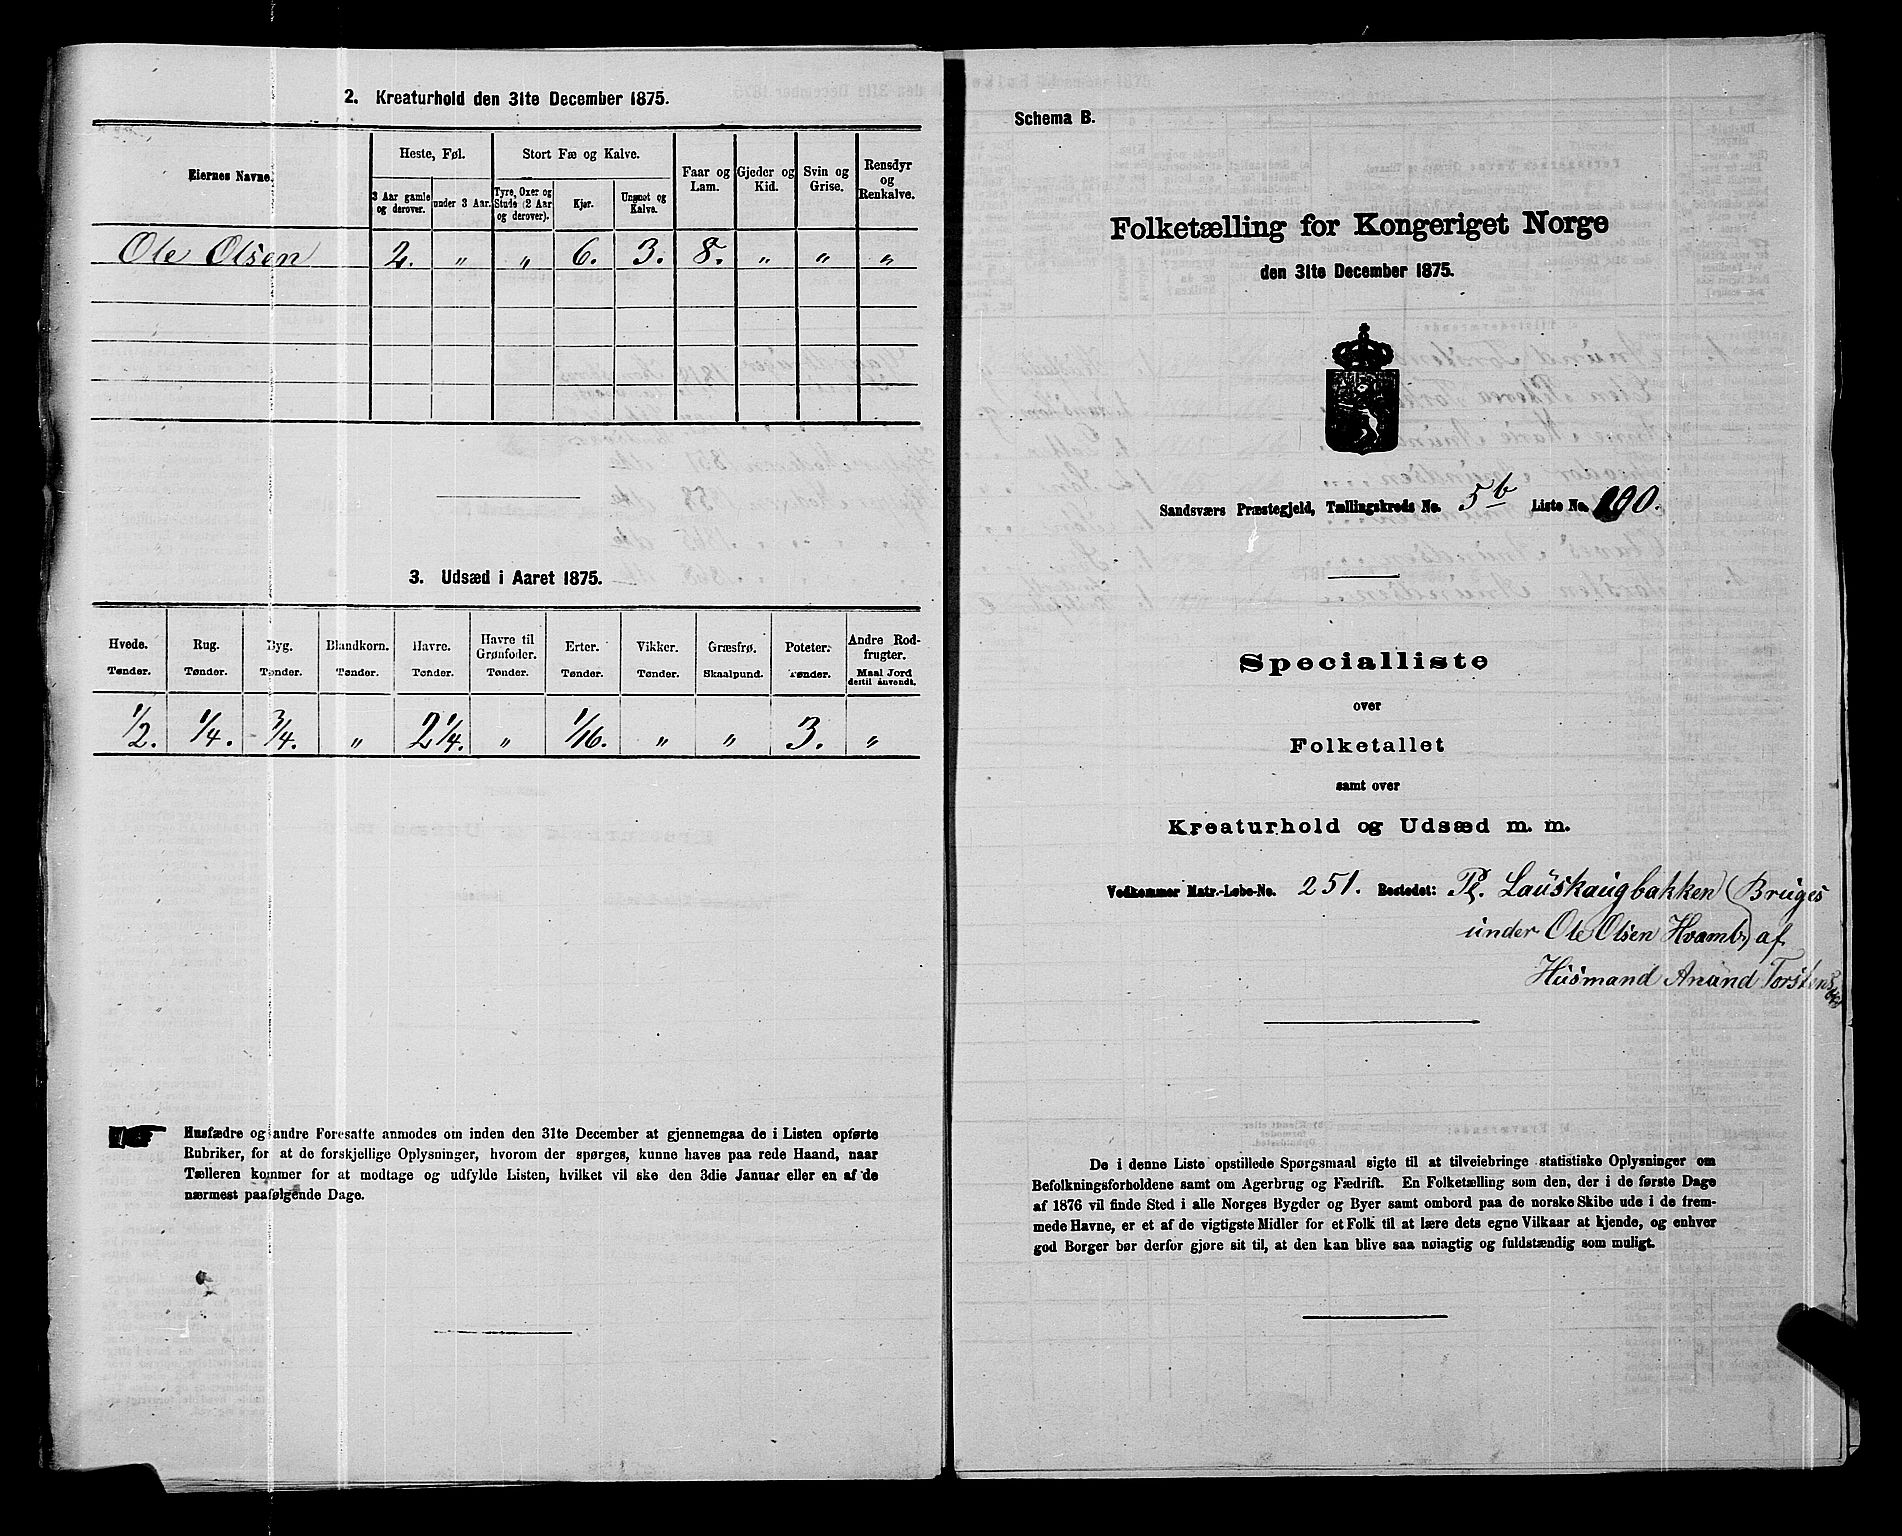 2. Kreaturhold den 31te December 1875.
Eiernes Navne.
Heste, Føl.
Stort Fæ og Kalve.
Faar og Lam.
Gjeder og Kid.
Svin og Grise.
Rensdyr og Renkalve.
3 Aar gamle og derover.
under 3 Aar.
Tyre, Oxer og Stude (2 Aar og derover).
Kjør.
Ungnøt og Kalve.
Ole Olsen 2. " " 6. 3. 8. " " "
3. Udsæd i Aaret 1875.
Hvede. Rug. Byg. Blandkorn. Havre. Havre til Grønfoder. Erter. Vikker. Græsfrø. Poteter. Andre Rodfrugter.
Tønder. Tønder. Tønder. Tønder. Tønder. Tønder. Tønder. Tønder. Skaalpund. Tønder. Maal Jord dertil anvendt.
1/2. 1/4. 3/4. " 2 1/4. " 1/16. " " 3. "
Husfædre og andre Foresatte anmodes om inden den 31te December at gjennemgaa de i Listen opførte
Rubriker, for at de forskjellige Oplysninger, hvorom der spørges, kunne haves paa rede Haand, naar
Tælleren kommer for at modtage og udfylde Listen, hvilket vil ske den 3die Januar eller en af de
nærmest paafølgende Dage.
Schema B.
Folketælling for Kongeriget Norge
den 31te December 1875.
Sandsværs Præstegjeld, Tællingskreds No. 5b Liste No. 100.
Specialliste
over
Folketallet
samt over
Kreaturhold og Udsæd m. m.
Vedkommer Matr.-Løbe-No. 251. Bostedet: Pl. Lauskaugbakken (Bruges
under Ole Olsen Hvamb) af
Husmand Anund Torstens
De i denne Liste opstillede Spørgsmaal sigte til at tilveiebringe statistiske Oplysninger om
Befolkningsforholdene samt om Agerbrug og Fædrift. En Folketælling som den, der i de første Dage
af 1876 vil finde Sted i alle Norges Bygder og Byer samt ombord paa de norske Skibe ude i de frem-
mede Havne, er et af de vigtigste Midler for et Folk til at lære dets egne Vilkaar at kjende, og enhver
god Borger bør derfor gjøre sit til, at den kan blive saa nøiagtig og fuldstændig som muligt.